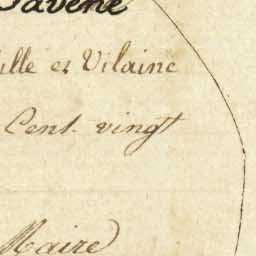 Ille et Vilaine
Cent vingt
Maire